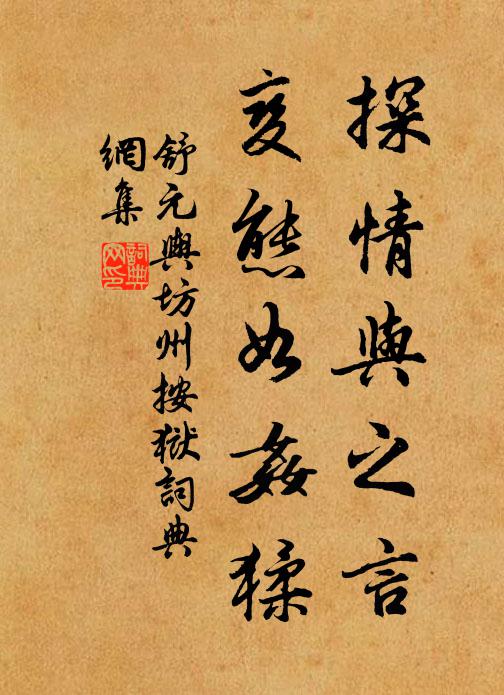 探情與之言
变態如姦猱
舒元輿坊州按獄詞典
網集
詞典網印